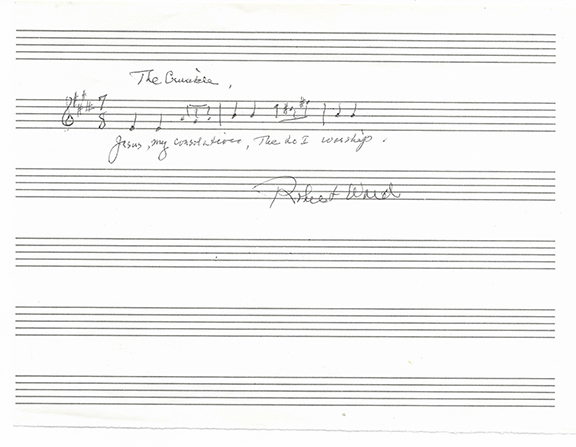 The Crucible,
7
8
Jesus, my consolation, Thee do I worship.
Robert Ward